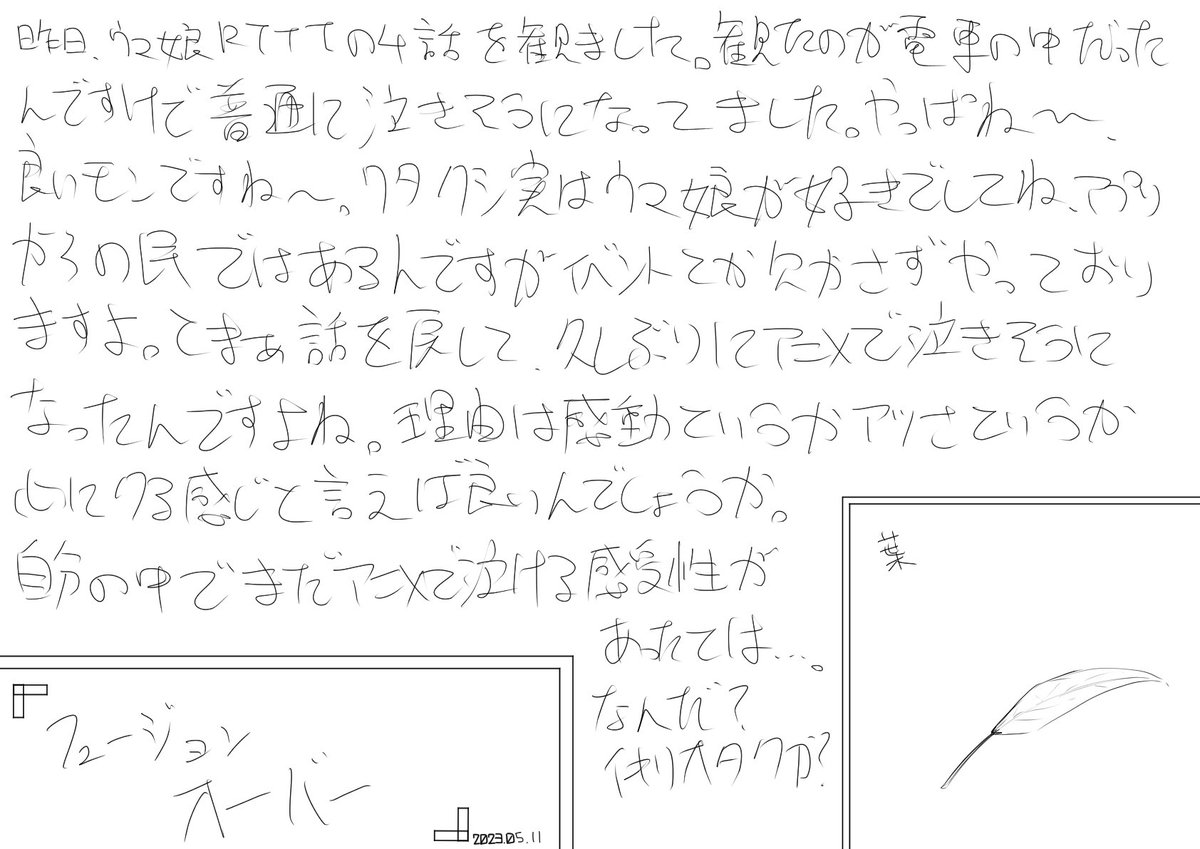 昨日、ウマ娘RTTTの4話を観ました。観たのが電車の中だった
んですけど普通に泣きそうになってました。やっぱね〜、
良いモンですね〜。ワタクシ実はウマ娘が好きでしてね、アプリ
からの民ではあるんですがイベントとか欠かさずやっており
ますよ。とまぁ話を戻して、久しぶりにアニメで泣きそうに
なったんですよね。理由は感動というかアツさというか
心にクる感じと言えば良いんでしょうか。
自分の中でまだアニメで泣ける感受性が
あったとは…。
なんだ?
オタクが?
『フュージョン
オーバー』
2023.05.11
葉